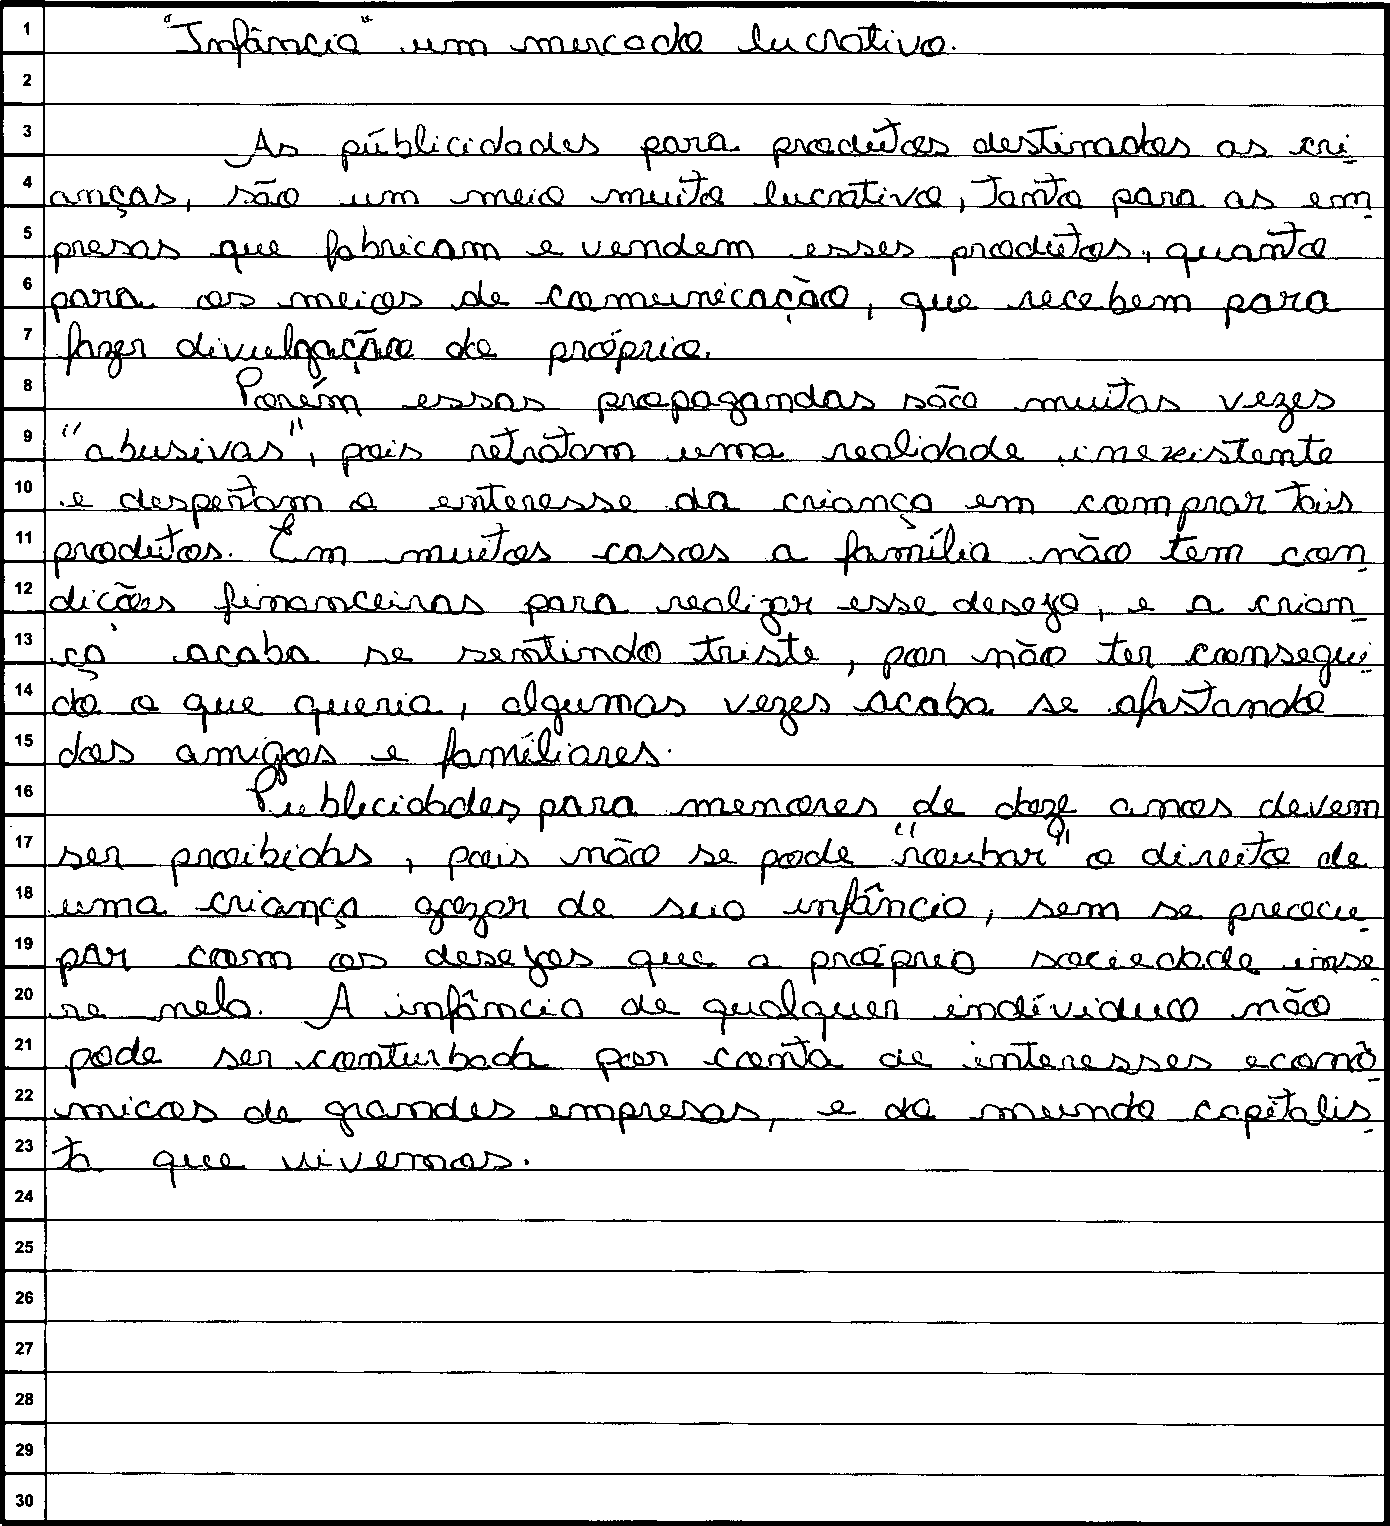 1 "Infância" um mercado lucrativo.
2
3 As públicidades para produtos destinados as cri
4 anças, são um meio muito lucrativo, tanto para as em
5 presas que fabricam e vendem esses produtos, quanto
6 para os meios de comunicação, que recebem para
7 fazer divulgação do próprio.
8 Porém essas propagandas são muitas vezes
9 "abusivas", pois retratam uma realidade inexistente
10 e despertam o enteresse da criança em comprar tais
11 produtos. Em muitos casos a família não tem con
12 dições financeiras para realizar esse desejo, e a crian
13 ça acaba se sentindo triste, por não ter consegui
14 do o que queria, algumas vezes acaba se afastando
15 dos amigos e famíliares.
16 Publicidades para menores de doze anos devem
17 ser proibidas, pois não se pode "roubar" o direito de
18 uma criança gozar de sua infância, sem se preocu
19 par com os desejos que a própria sociedade inse
20 re nela. A infância de qualquer indívíduo não
21 pode ser conturbada por conta de interesses econô
22 micos de grandes empresas, e do mundo capitalis
23 ta que vivemos.
24
25
26
27
28
29
30